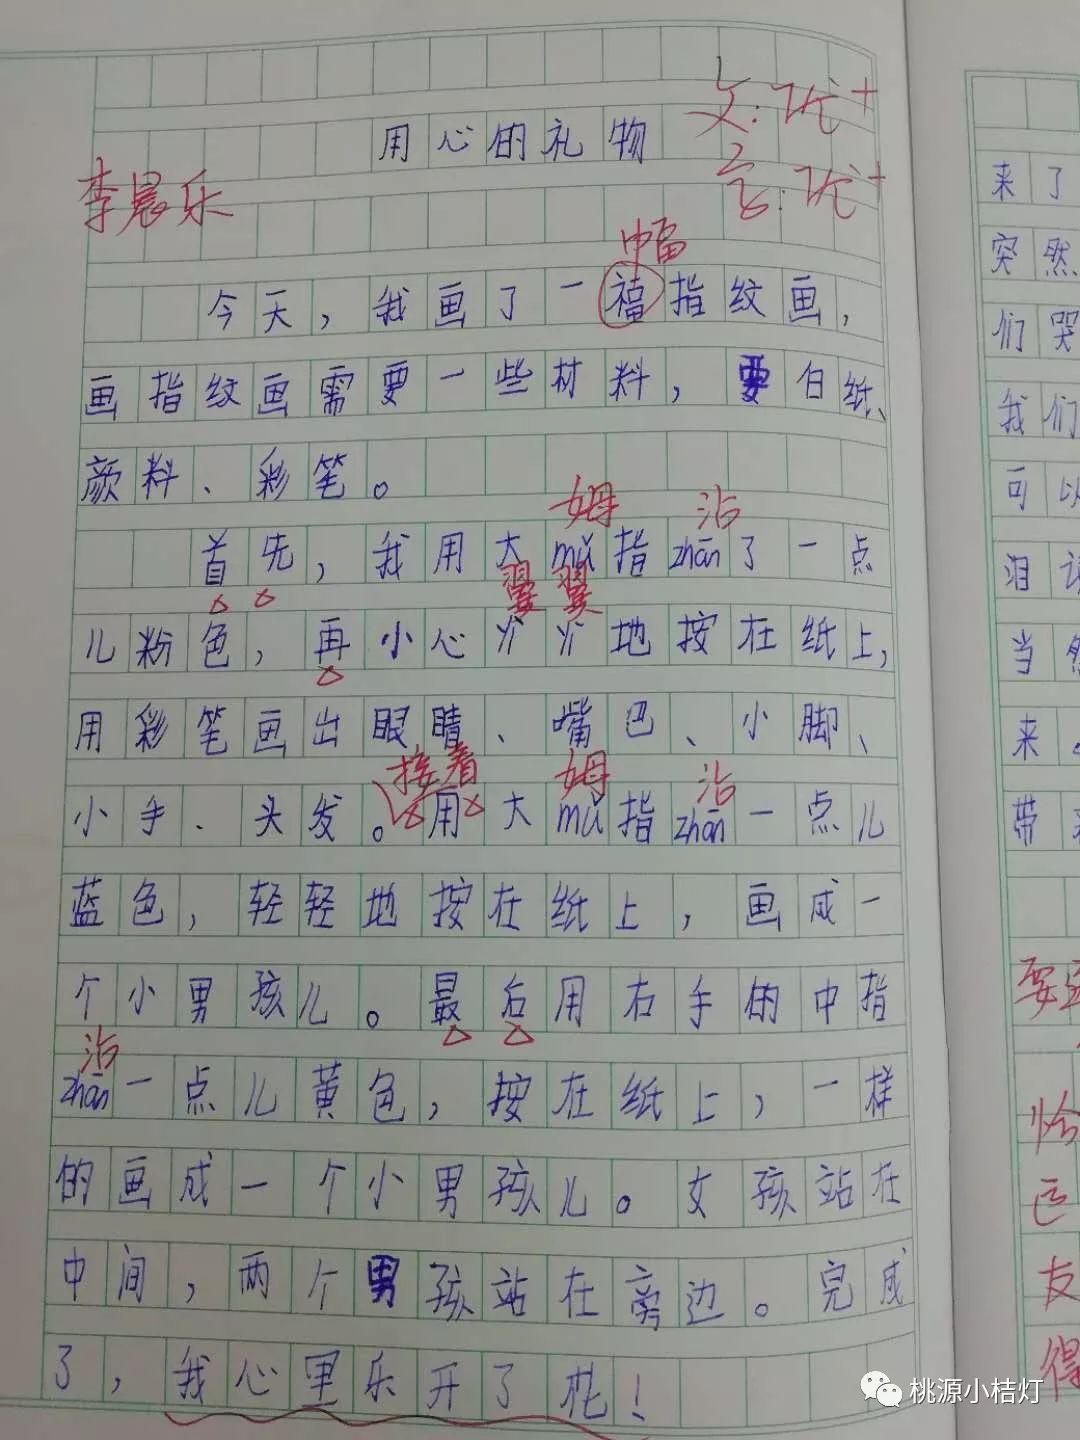 文:优+
用心的礼物
李晨乐
书:优+
幅
今天，我画了一福指纹画，
画指纹画需要一些材料，要白纸、
颜料、彩笔。
姆 沾
首先，我用大mǔ指zhān了一点
翼翼
儿粉色，再小心丷丷地按在纸上，
用彩笔画出眼睛、嘴巴、小脚、
接着 姆 沾
小手、头发。用大mǔ指zhān一点儿
蓝色，轻轻地按在纸上，画成一
个小男孩儿。最后用右手的中指
沾
zhān一点儿黄色，按在纸上，一样
的画成一个小男孩儿。女孩站在
中间，两个男孩站在旁边。完成
了，我心里乐开了花！
来了
突然
们哭
我们
可以
泪
当然
来
带
要
恰
友
得
桃源小桔灯